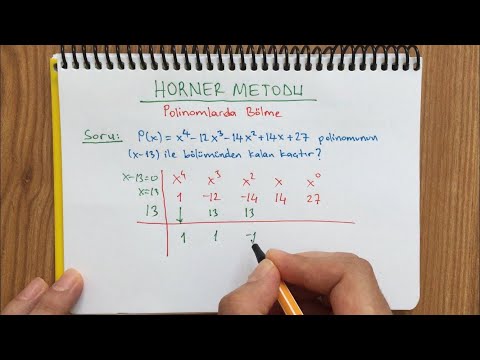 HORNER METODU
Polinomlarda Bölme
Soru: P(x) = x⁴-12x³-14x²+14x+27 polinomunun
(x-13) ile bölümünden kalan kaçtır?
x-13=0 x⁴ x³ x² x x⁰
x=13 1 -12 -14 14 27
13 ↓ 13 13
1 1 -1